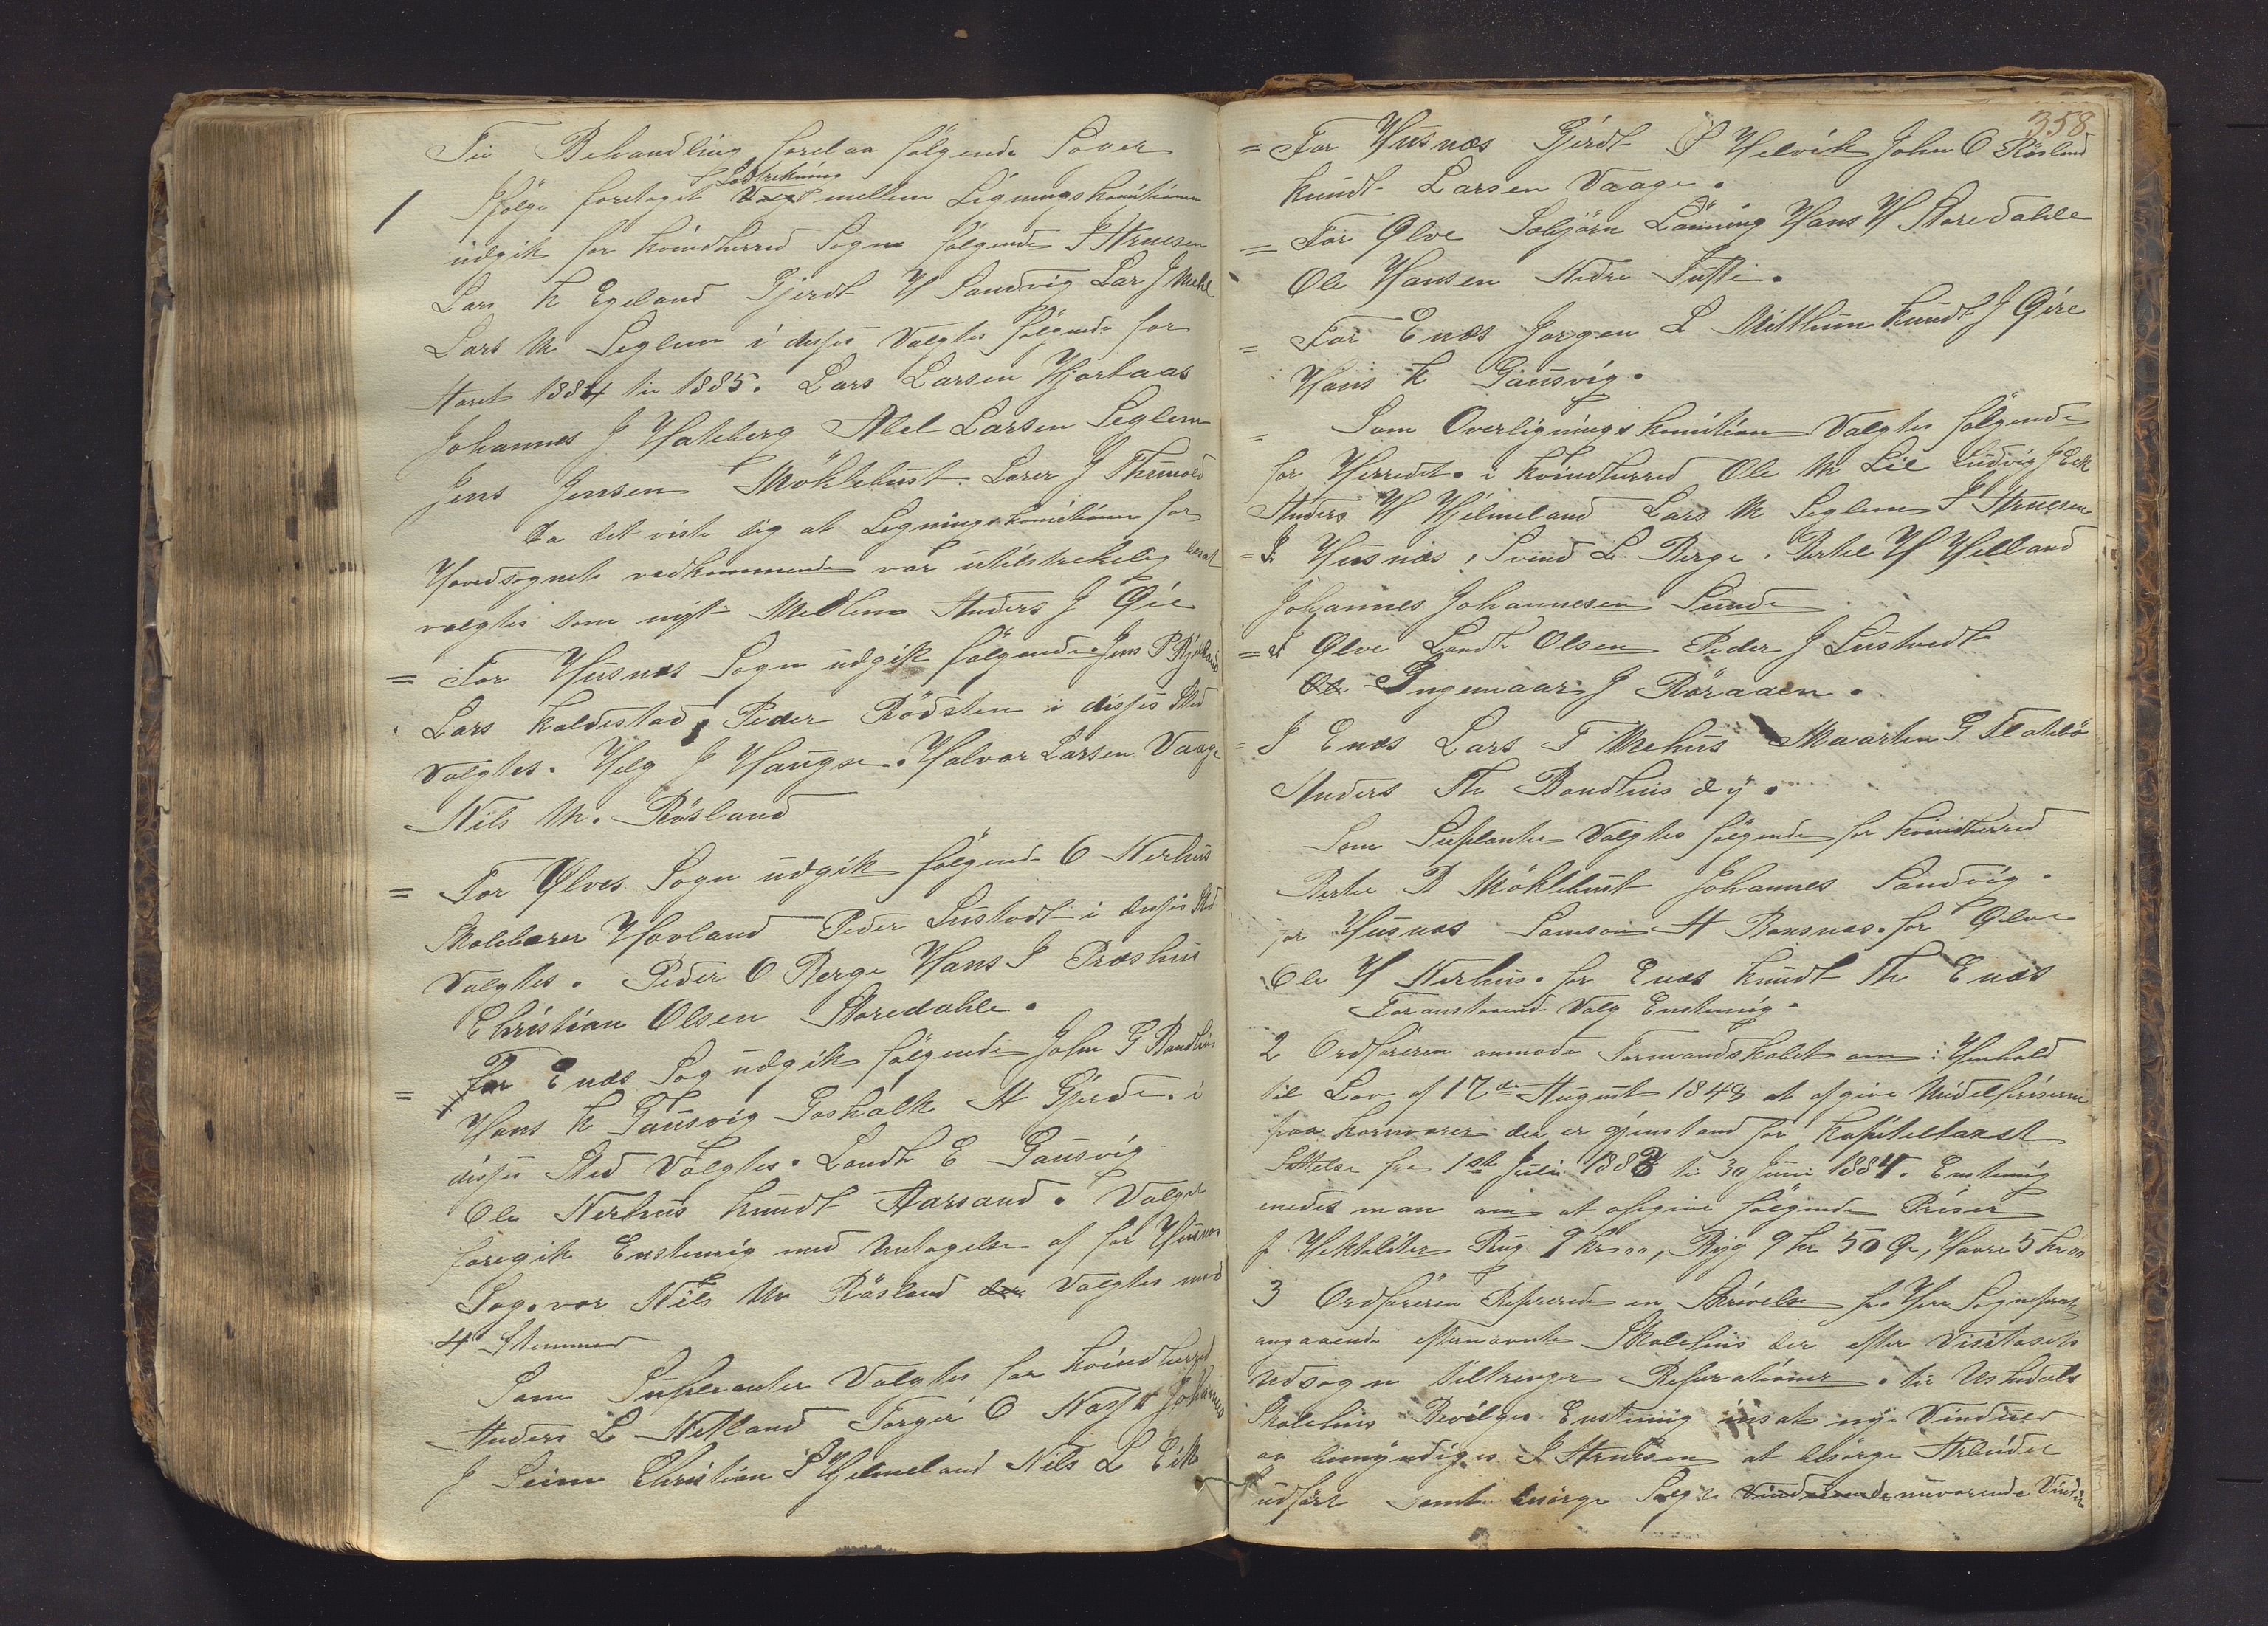 Til Behandling forelaa følgende Sager
1 Ifølge foretaget Lodtrekning mellem Ligningskomitionen
udgik for Kvindherred Sogn følgende I Arnesen
Lars K Egeland Gjerdt H Sandvig Lar J Mehl
Lars M Seglem i disses Valgtes følgende for
Aaret 1884 til 1885. Lars Larsen Hjortaas
Johannes J Hateberg Abel Larsen Seglem
Jens Jensen Møklebust. Lærer J Themold
Da det viste sig at Ligningskomitionen for
Hovedsognets vedkommende var utilstrekelig besat
valgtes som nyt Medlem Anders J Øie
= For Husnæs Sogn udgik følgende. Jens P Kjærland
Lars Kaldestad, Peder Rødsten i disses Sted
Valgtes. Helg J Haugse. Halvor Larsen Vaage
Nils M. Røsland
= For Ølves Sogn udgik følgende O Nerhus
Skolelærer Hovland Peder Tustvedt i disses Sted
Valgtes. Peder O Berge Hans J Præshus
Christian Olsen Storedahle.
= For Enæs Sog udgik følgende John G Bondhus
Hans K Gausvig Goskalk A Gjerde. i
disses Sted Valgtes. Landt E Gausvig
Ole Nerhus Knudt Aarsand. Valget
foregik Enstemig med Undtagelse af for Husnæs
Sog. var Nils M Røsland der Valgtes med
4 Stemmer
Som Supleanter Valgtes for Kvindherred
Anders L Netland Torger O Næss Johannes
J Seim Christian P Helmeland Nils L Eik
358
= For Husnæs Gjerdt P Helvik John O Røsland
Knudt Larsen Vaage.
= For Ølve Sæbjørn Lønning Hans H Storedahle
Ole Hansen Nedre Tufte.
= For Enæs Jørgen L Mitthun Knudt J Øire
Hans K Gausvig.
= Som Overligningskomition Valgtes følgende
for Herredet. i Kvindherred Ole M Lie Ludvig J Eik
Anders H Hjelmeland Lars M Seglem I Arnesen
= I Husnæs, Svend L Berge. Bertel H Helland
Johannes Johannesen Sunde
= I Ølve Landt Olsen Peder J Tustvedt
Ole Ingemaar J Røraaen.
= I Enæs Lars T Mehus Maarten G Flatebø
Anders Th Bondhus d y.
Som Supleanter Valgtes følgende for Kvindherred
Bertel B Møklebust Johannes Sandvig.
for Husnæs Samson A Ransnæs. for Ølve
Ole H Nerhus. for Enæs Knudt Th Enæs
Foranstaaend Valg Enstemig.
2 Ordføreren anmode Formandskabet om i Henhold
til Lov af 17de August 1848 at afgive Midelpriserne
paa Kornvarer der er gjenstand for Kapiteltaxst
Settelse fra 1ste Juli 1883 til 30 Juni 1884. Enstemig
enedes man om at afgive følgende Priser
p Hektoliter Rug 9 Kr 00, Byg 9 Kr 50 Ør, Havre 5 Kr 00
3 Ordføreren Refererede en Skrivelse fra Herr Sogneprest
angaaende efternævnte Skolehus der efter Visitatsets
Udsagn tiltrenger Reperationer. til Uskedals
Skolehus Bevilges Enstemig insat nye Vinduer
og bemyndiges I Arnesen at besørge Arbeidet
udført samt besørge Salg de Vinduerende nuværende Vindu